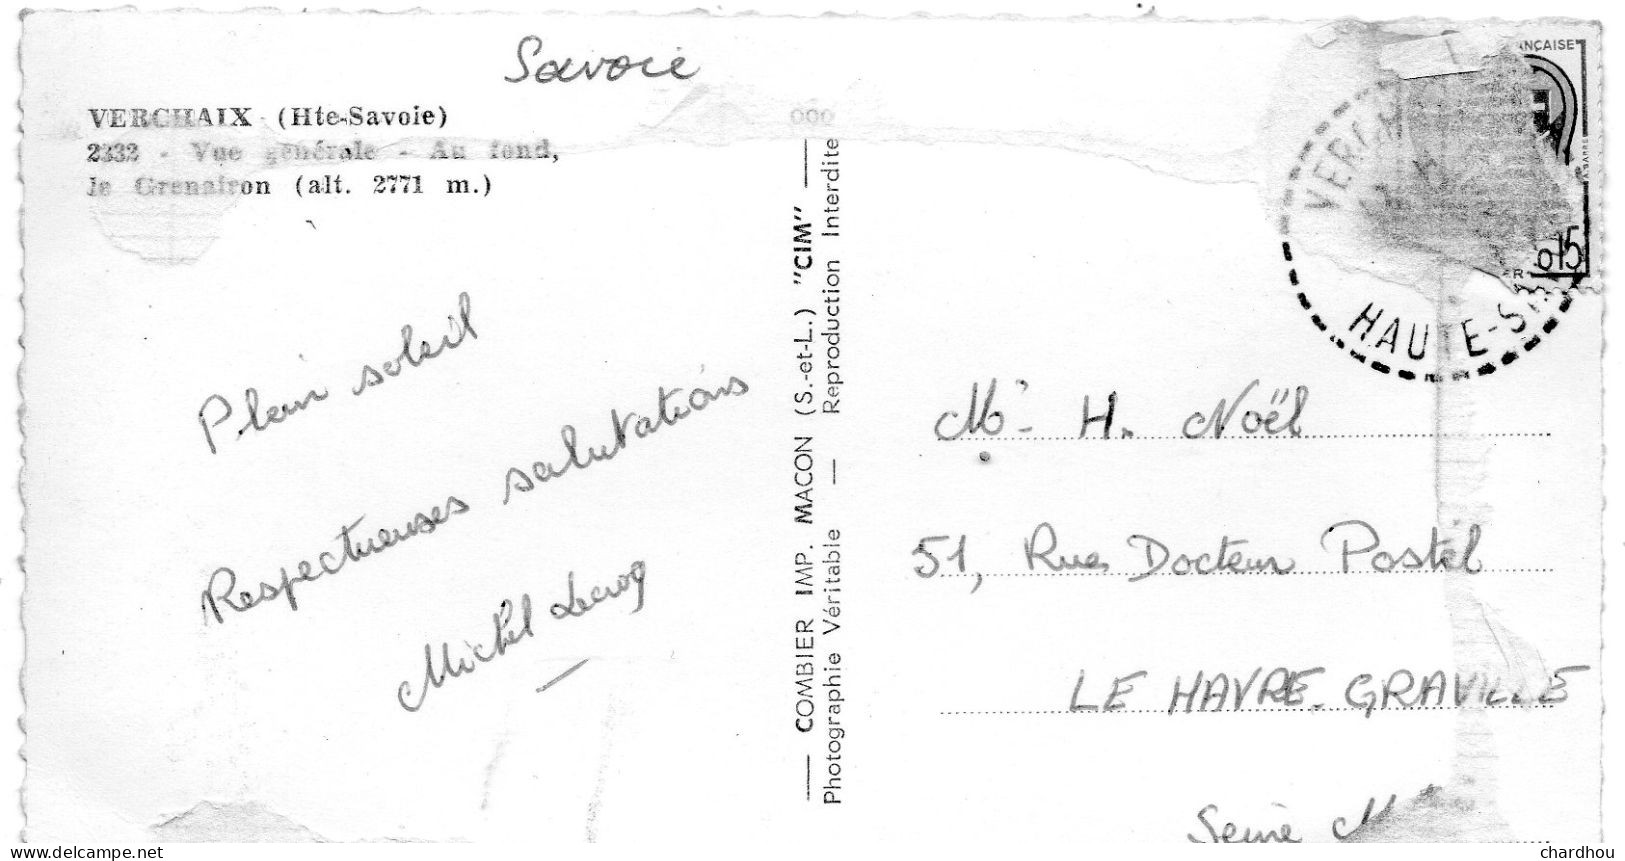 Savoie
VERCHAIX (Hte-Savoie)
2332 - Vue générale - Au fond,
le Grenairon (alt. 2771 m.)
Plein soleil
Respectueuses salutations
Michel Lecroq
COMBIER IMP. MACON (S.-et-L.) "CIM"
Photographie Véritable — Reproduction Interdite
000
HAUTE-S
0,15
Mr. H. Noël
51, Rue Docteur Postel
LE HAVRE-GRAVILLE
Seine M
www.delcampe.net
chardhou